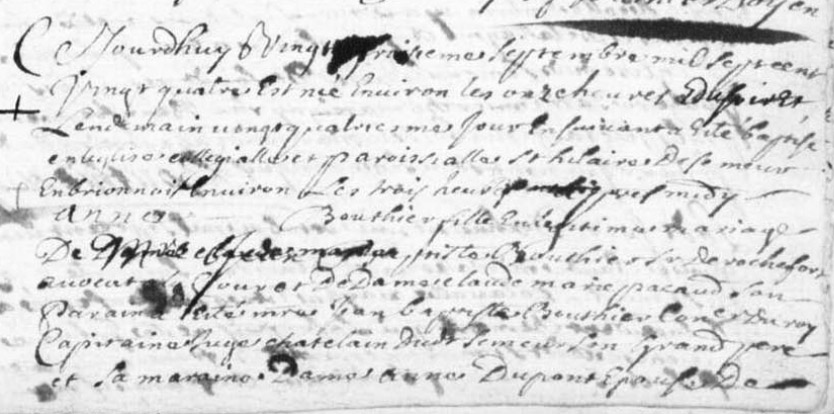 Aujourdhuy vingt troisieme septembre mil sept cent
Vingt quatre Est née Environ les onze heures Du soir Et
Lendemain vingt quatriesme Jour Ensuivant a Eté baptisé
en leglise collegialle et paroissialle St hilaire De semeur
En brionnois Environ Les trois heures apres midy
anne Bouthier fille En legitime mariage
De Bouthier Sr de rochefort
avocat Jour et De Dame claude marie pacaud Son
Parain a Eté mre Jean baptiste Bouthier Coner Du roy
Capitaine Juge chatelain dudt semeur Son Grand pere
et Sa maraine Dame anne Dupont Epouse De